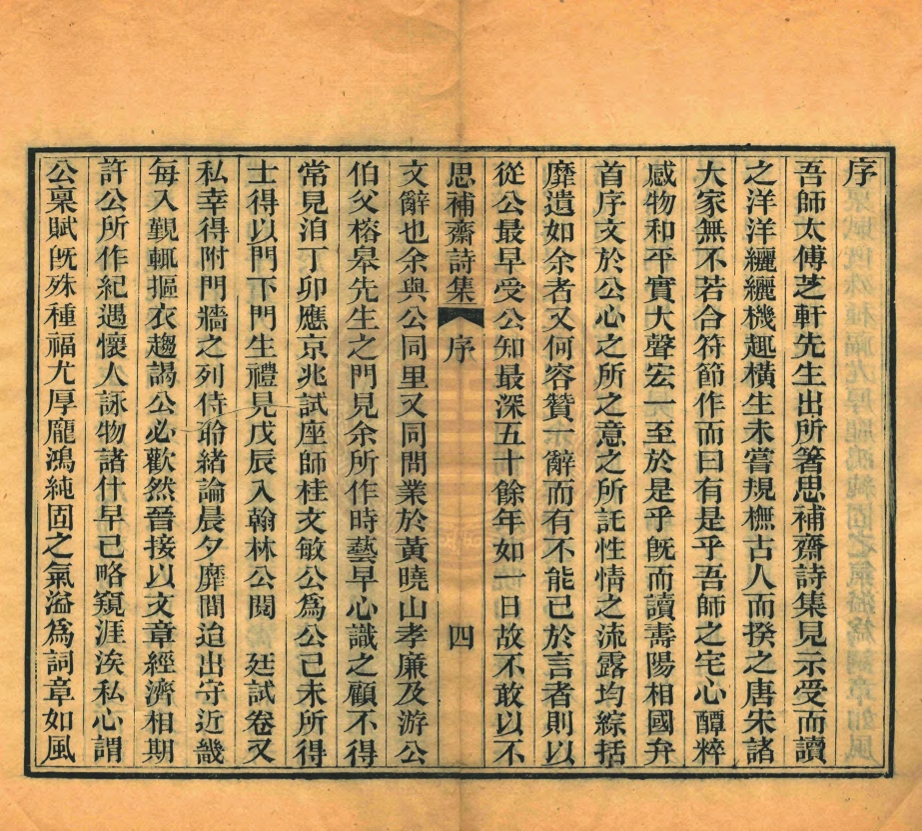 序
吾師太傅芝軒先生出所箸思補齋詩集見示受而讀
之洋洋纚纚機趣橫生未嘗規橅古人而揆之唐宋諸
大家無不若合符節作而曰有是乎吾師之宅心醰粹
感物和平實大聲宏一至於是乎旣而讀壽陽相國弁
首序文於公心之所之意之所託性情之流露均綜括
靡遺如余者又何容贊一辭而有不能已於言者則以
從公最早受公知最深五十餘年如一日故不敢以不
思補齋詩集 序 四
文辭也余與公同里又同問業於黃曉山孝廉及游公
伯父榕皋先生之門見余所作時藝早心識之顧不得
常見洎丁卯應京兆試座師桂文敏公爲公己未所得
士得以門下門生禮見戊辰入翰林公閱 廷試卷又
私幸得附門牆之列侍聆緒論晨夕靡間迨出守近畿
每入覲輒摳衣趨謁公必歡然晉接以文章經濟相期
許公所作紀遇懷人詠物諸什早已略窺涯涘私心謂
公稟賦旣殊種福尤厚厖鴻純固之氣溢爲詞章如風